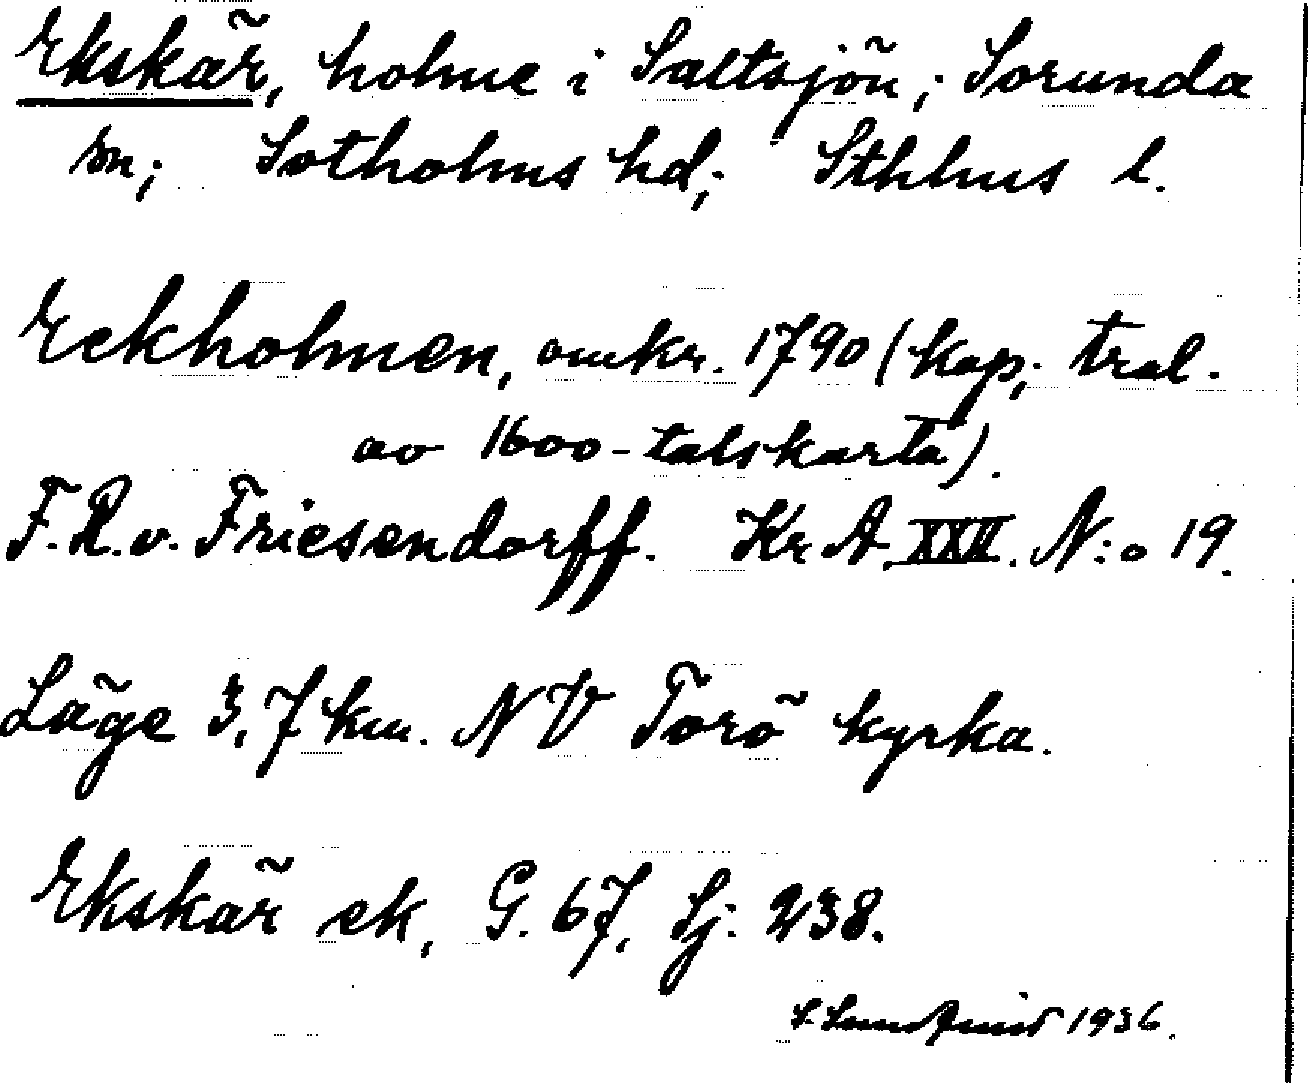 Ekskär, holme i Saltsjön; Sorunda
sn; Sotholms hd; Sthlms l.
Eekholmen, omkr. 1790 (kop; trol.
av 1600-talskarta).
F. R. v. Friesendorff. Kr A. XXII. N:o 19.
Läge 3,7 km. NV Torö kyrka.
Ekskär ek, G. 67, Sj: 238.
1936.